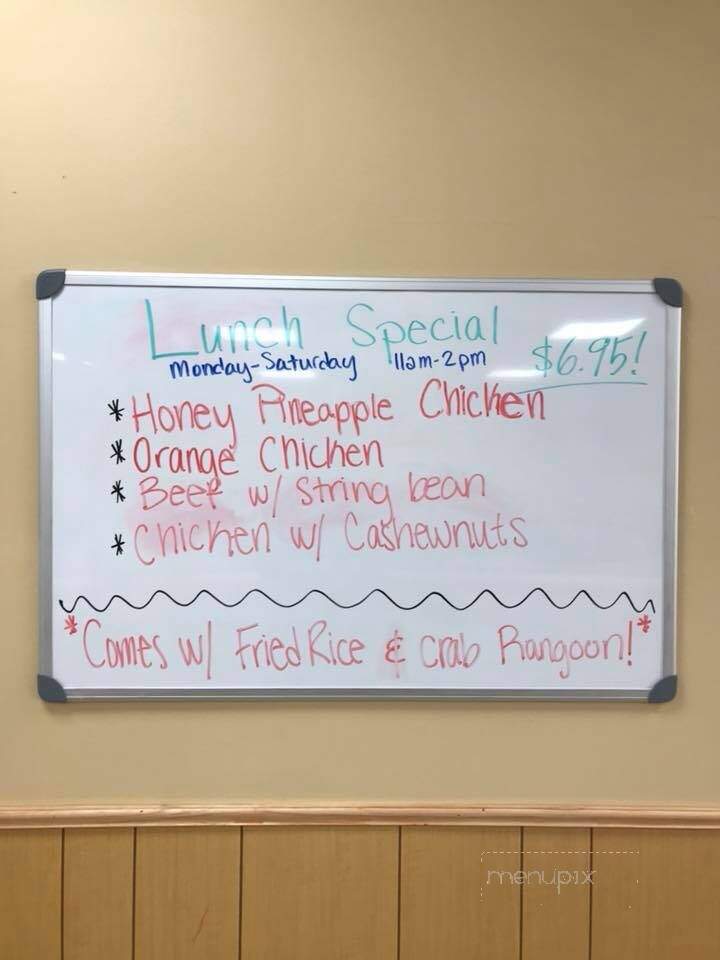 Lunch Special
$6.95!
Monday-Saturday 11am-2pm
* Honey Pineapple Chicken
* Orange Chicken
* Beef w/ String bean
* Chicken w/ Cashewnuts
*Comes w/ Fried Rice & crab Rangoon!*
menupix